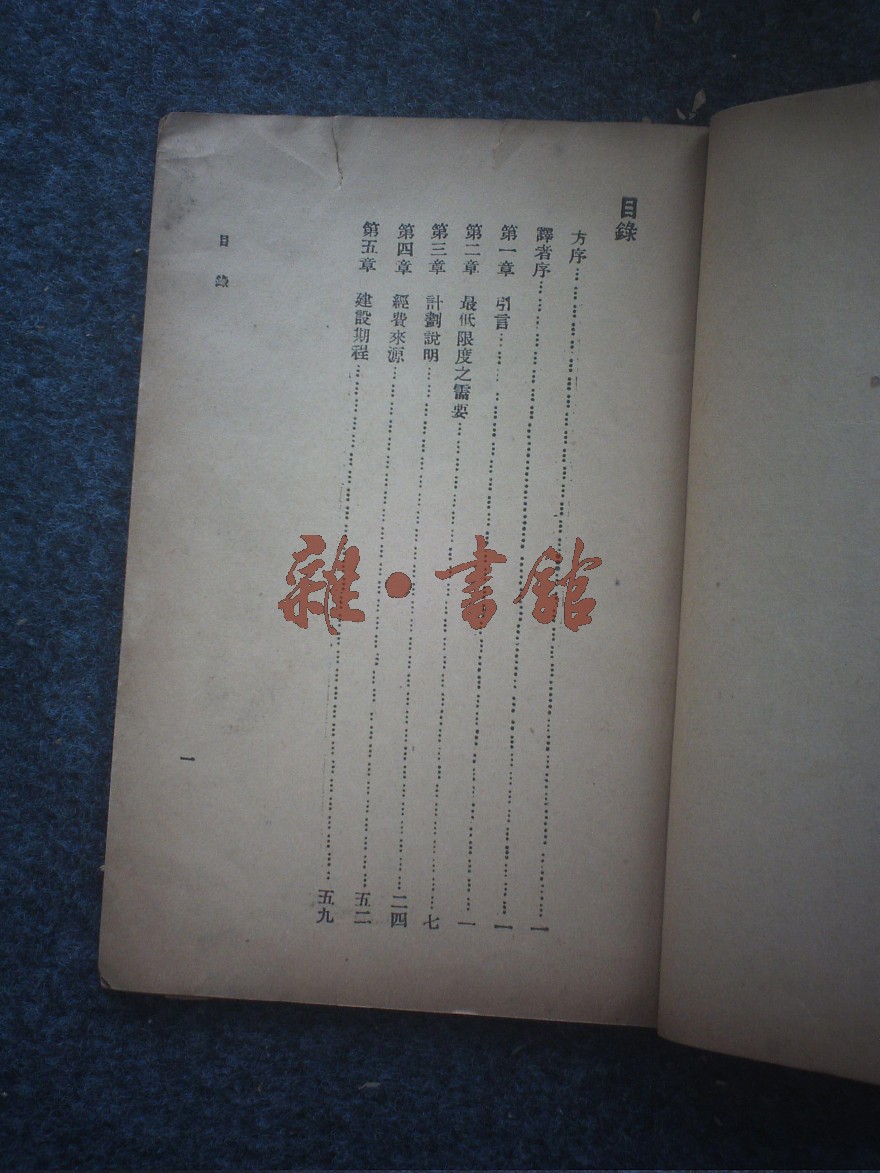 目錄
方序……………………一
譯者序……………………一
第一章 引言……………………一
第二章 最低限度之需要……………………七
第三章 計劃說明……………………二四
第四章 經費來源……………………五二
第五章 建設期程……………………五九
目錄
一
雜·書館